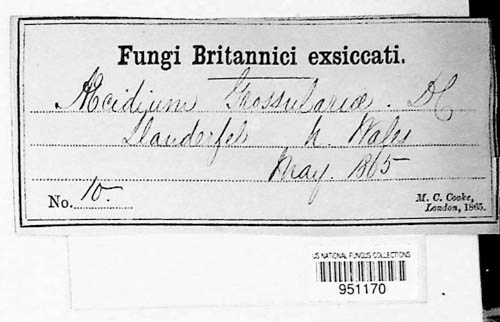 Fungi Britannici exsiccati.
Æcidium Grossulariæ. DC
Llanderfel N. Wales
May 1865
No. 10.
M. C. Cooke,
London, 1865.
US NATIONAL FUNGUS COLLECTIONS
951170